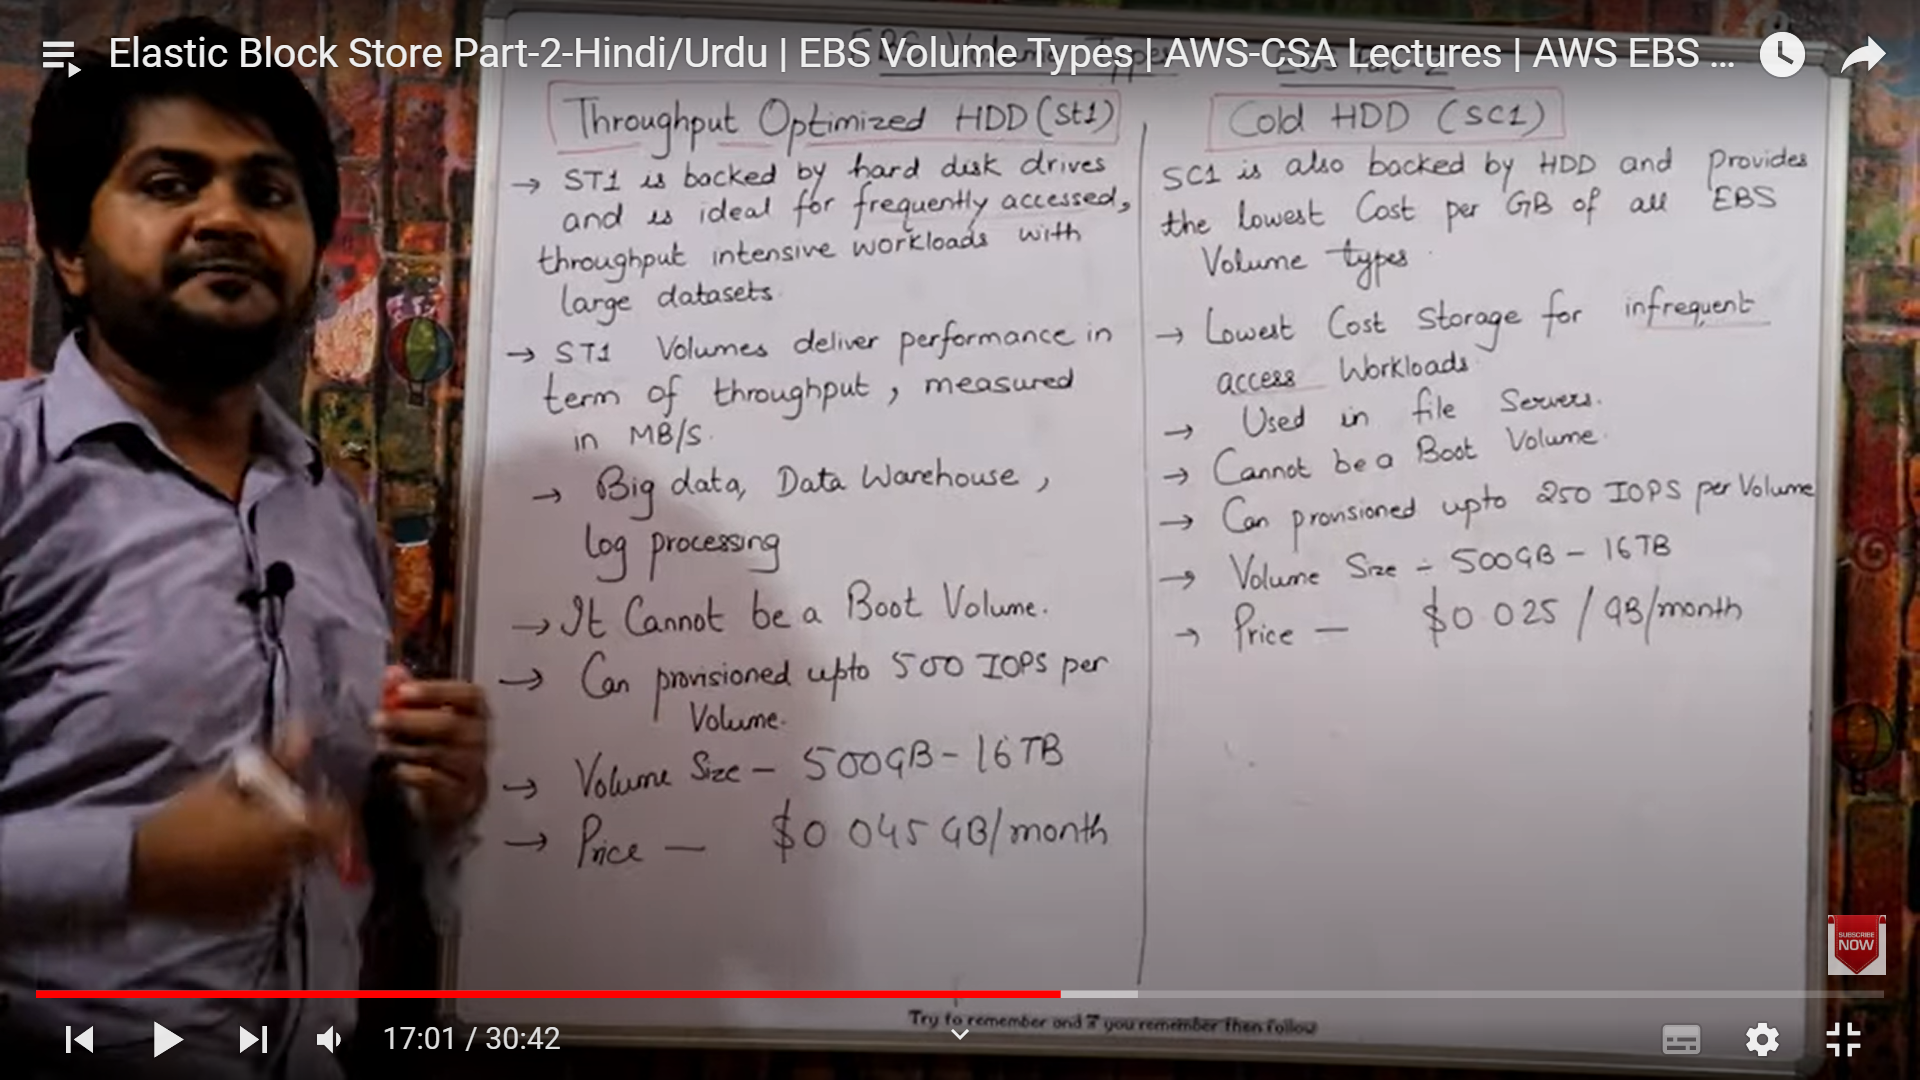 Elastic Block Store Part-2-Hindi/Urdu | EBS Volume Types | AWS-CSA Lectures | AWS EBS ...
Throughput Optimized HDD (St1)
→ ST1 is backed by hard disk drives
and is ideal for frequently accessed,
throughput intensive workloads with
large datasets.
→ ST1 Volumes deliver performance in
term of throughput, measured
in MB/S.
→ Big data, Data Warehouse,
Log processing
→ It Cannot be a Boot Volume.
→ Can provisioned upto 500 IOPS per
Volume.
→ Volume Size – 500GB – 16TB
→ Price — $0.045 GB/month
Cold HDD (SC1)
SC1 is also backed by HDD and provides
the lowest Cost per GB of all EBS
Volume types.
→ Lowest Cost Storage for infrequent
access Workloads.
→ Used in file Servers.
→ Cannot be a Boot Volume.
→ Can provisioned upto 250 IOPS per Volume
→ Volume Size ÷ 500GB – 16TB
→ Price — $0.025 / GB/month
SUBSCRIBE
NOW
Try to remember and if you remember then follow
17:01 / 30:42